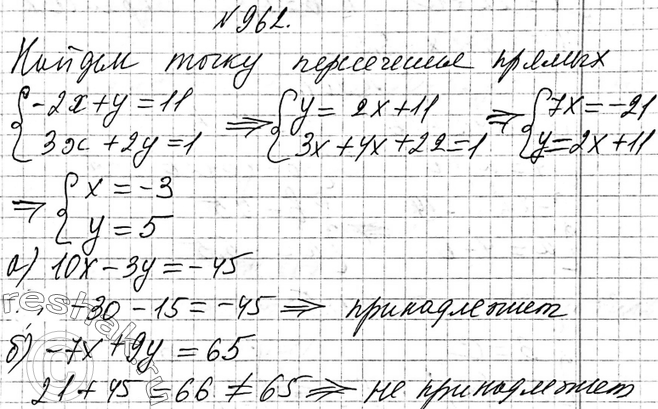 №962.
Найдем точку пересечения прямых
{-2x+y=11 ⇒ {y=2x+11 ⇒ {7x=-21
{3x+2y=1 {3x+4x+22=1 {y=2x+11
⇒ {x=-3
{y=5
а) 10x-3y=-45
-30-15=-45 ⇒ принадлежит
б) -7x+9y=65
21+45=66≠65 ⇒ не принадлежит
reshak.ru